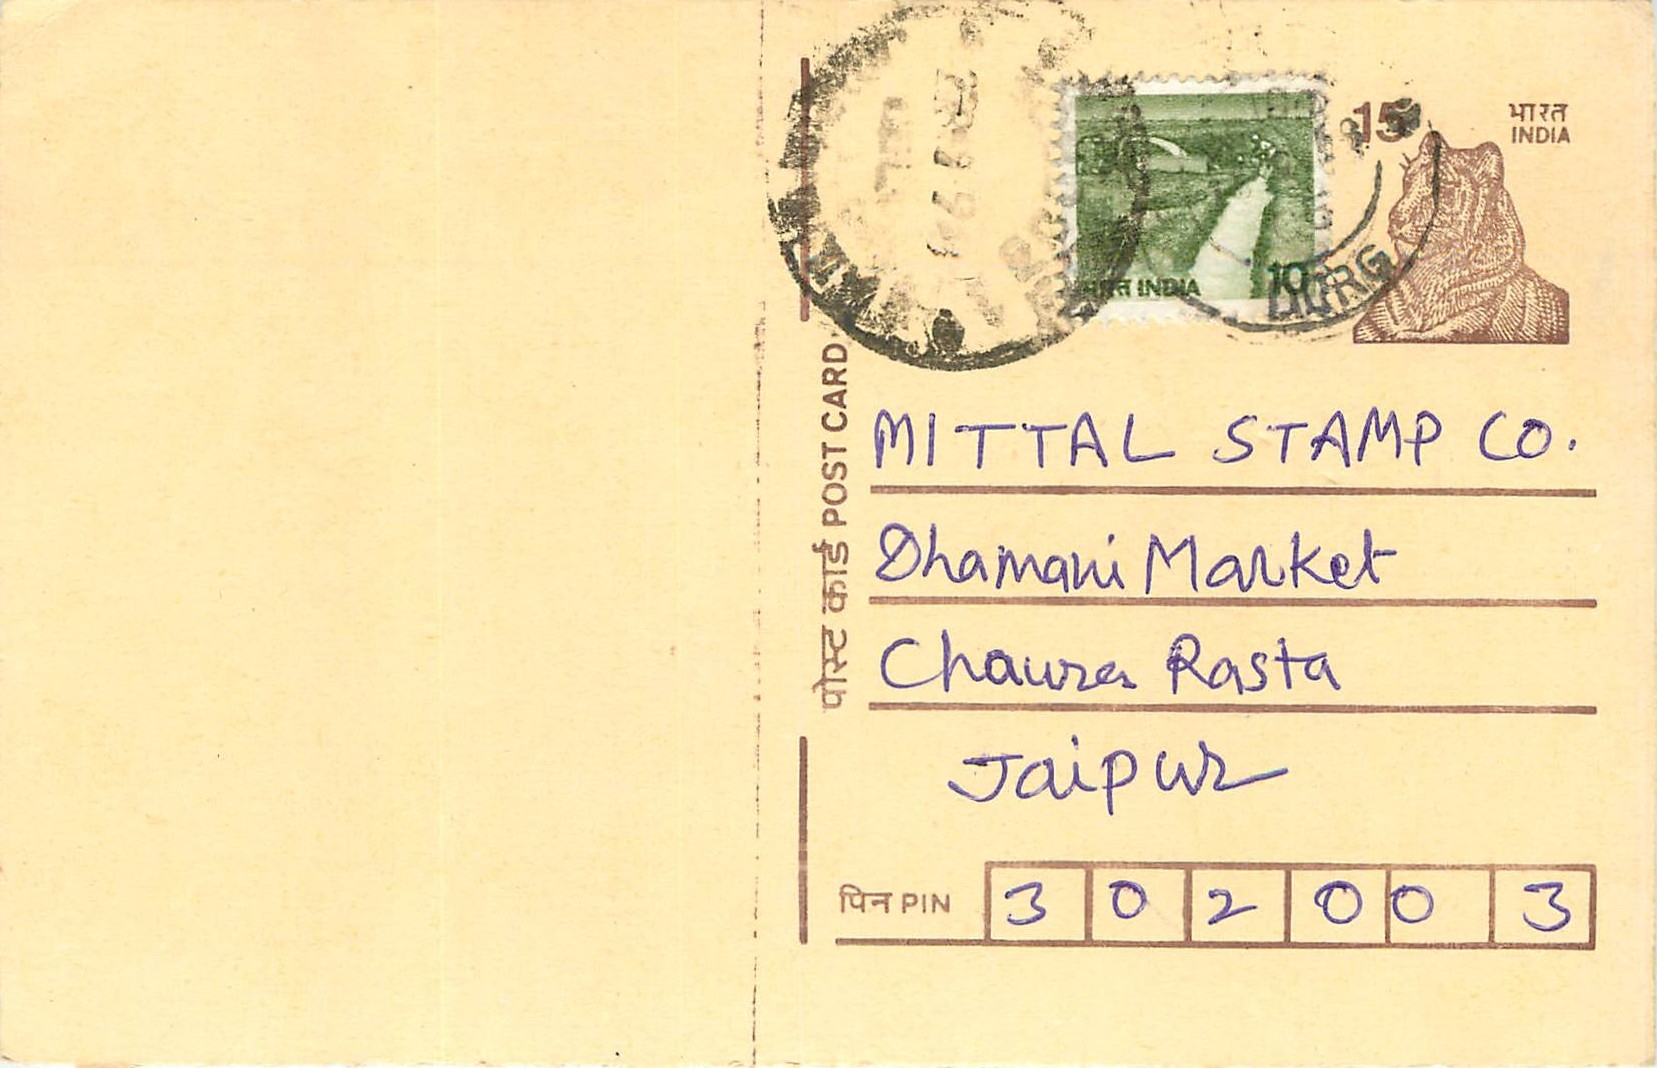 15
भारत
INDIA
भारत INDIA 10
DURG
पोस्ट कार्ड POST CARD
MITTAL STAMP CO.
Dhamani Market
Chaura Rasta
Jaipur
पिन PIN 3 0 2 0 0 3